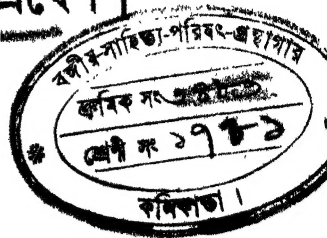 বঙ্গীয়-সাহিত্য-পরিষৎ-গ্রন্থাগার
ক্রমিক সং
শ্রেণী সং ১৭৮-১
কলিকাতা।